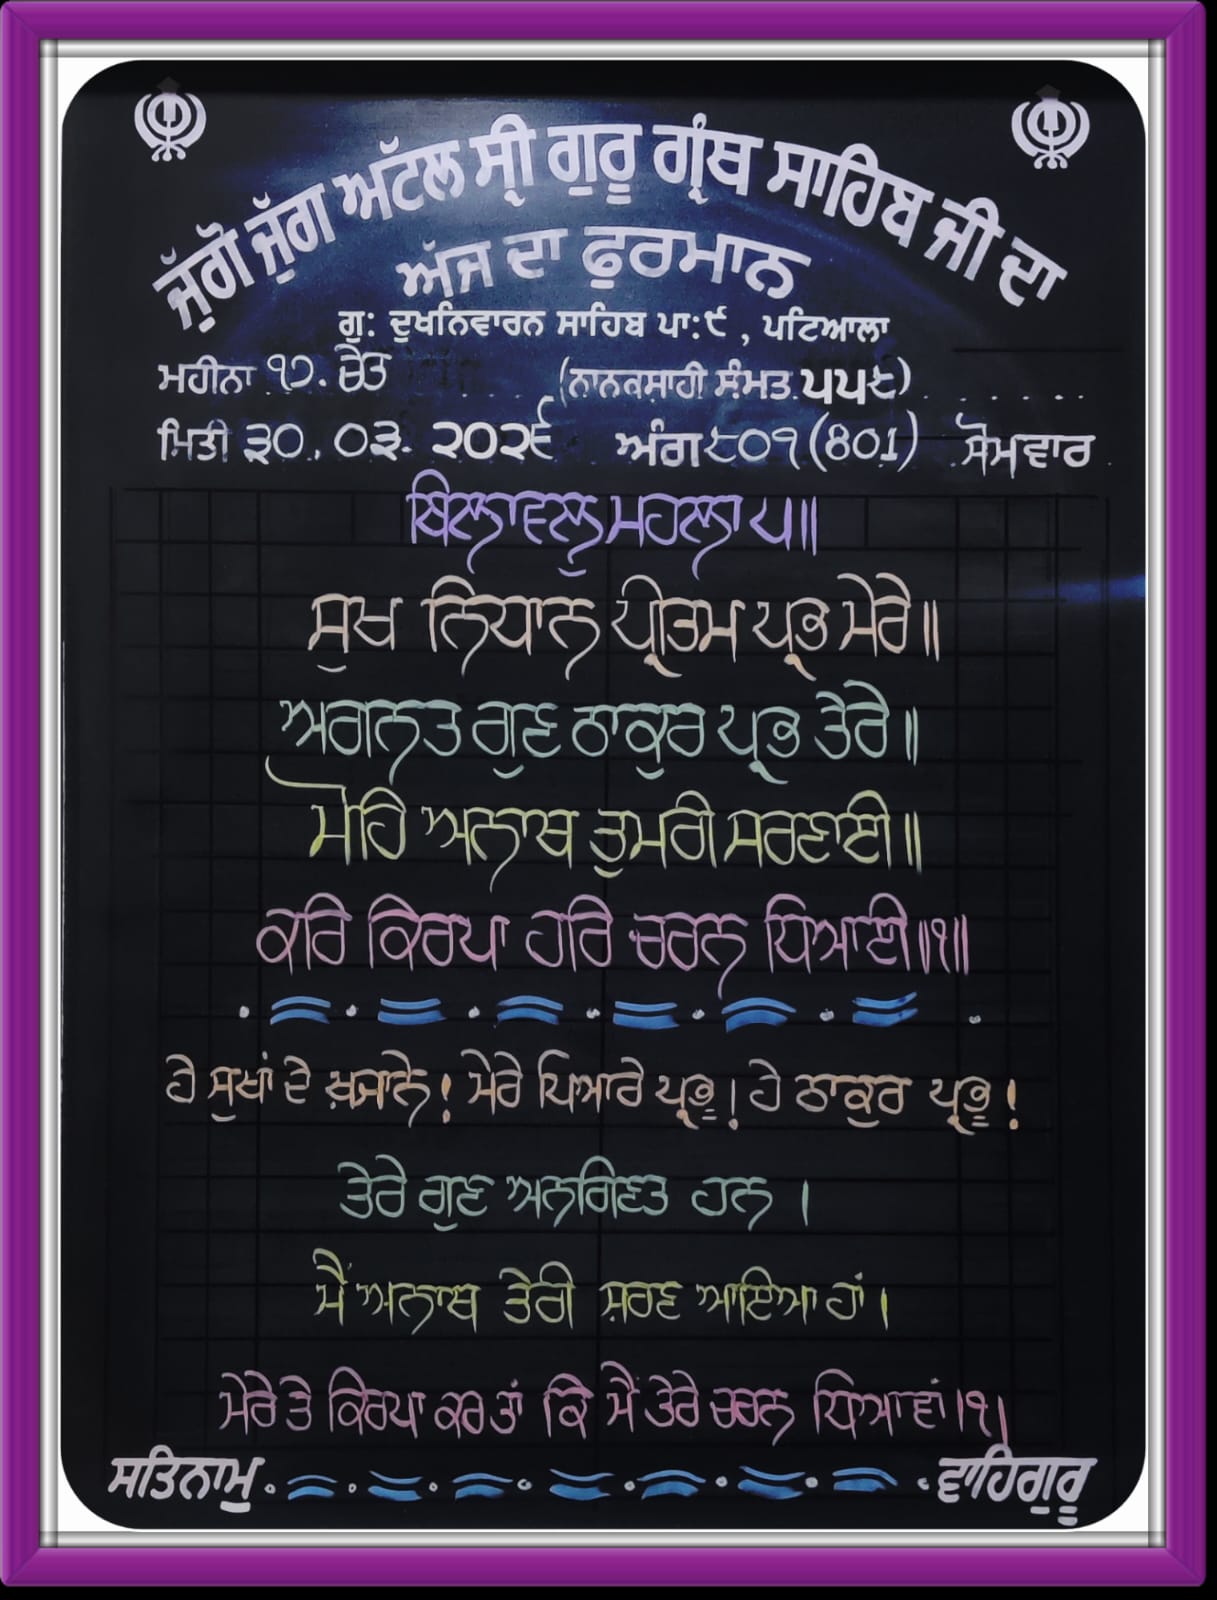 ਜੁੱਗੋ ਜੁੱਗ ਅੱਟਲ ਸ੍ਰੀ ਗੁਰੂ ਗ੍ਰੰਥ ਸਾਹਿਬ ਜੀ ਦਾ
ਅੱਜ ਦਾ ਫੁਰਮਾਨ
ਗੁ: ਦੁਖਨਿਵਾਰਨ ਸਾਹਿਬ ਪਾ:੯ , ਪਟਿਆਲਾ
ਮਹੀਨਾ ੧੭. ਚੇਤ (ਨਾਨਕਸ਼ਾਹੀ ਸੰਮਤ ੫੫੮)
ਮਿਤੀ ੩੦. ੦੩. ੨੦੨੬ ਅੰਗ ੮੦੧ (801) ਸੋਮਵਾਰ
ਬਿਲਾਵਲੁ ਮਹਲਾ ੫॥
ਸੁਖ ਨਿਧਾਨ ਪ੍ਰੀਤਮ ਪ੍ਰਭ ਮੇਰੇ॥
ਅਗਨਤ ਗੁਣ ਠਾਕੁਰ ਪ੍ਰਭ ਤੇਰੇ॥
ਮੋਹਿ ਅਨਾਥ ਤੁਮਰੀ ਸਰਣਾਈ॥
ਕਰਿ ਕਿਰਪਾ ਹਰਿ ਚਰਨ ਧਿਆਈ॥੧॥
ਹੇ ਸੁਖਾਂ ਦੇ ਖ਼ਜ਼ਾਨੇ! ਮੇਰੇ ਪਿਆਰੇ ਪ੍ਰਭੂ! ਹੇ ਠਾਕੁਰ ਪ੍ਰਭੂ!
ਤੇਰੇ ਗੁਣ ਅਨਗਿਣਤ ਹਨ।
ਮੈਂ ਅਨਾਥ ਤੇਰੀ ਸ਼ਰਣ ਆਇਆ ਹਾਂ।
ਮੇਰੇ ਤੇ ਕਿਰਪਾ ਕਰ ਤਾਂ ਕਿ ਮੈਂ ਤੇਰੇ ਚਰਨ ਧਿਆਵਾਂ।੧।
ਸਤਿਨਾਮੁ ਵਾਹਿਗੁਰੂ